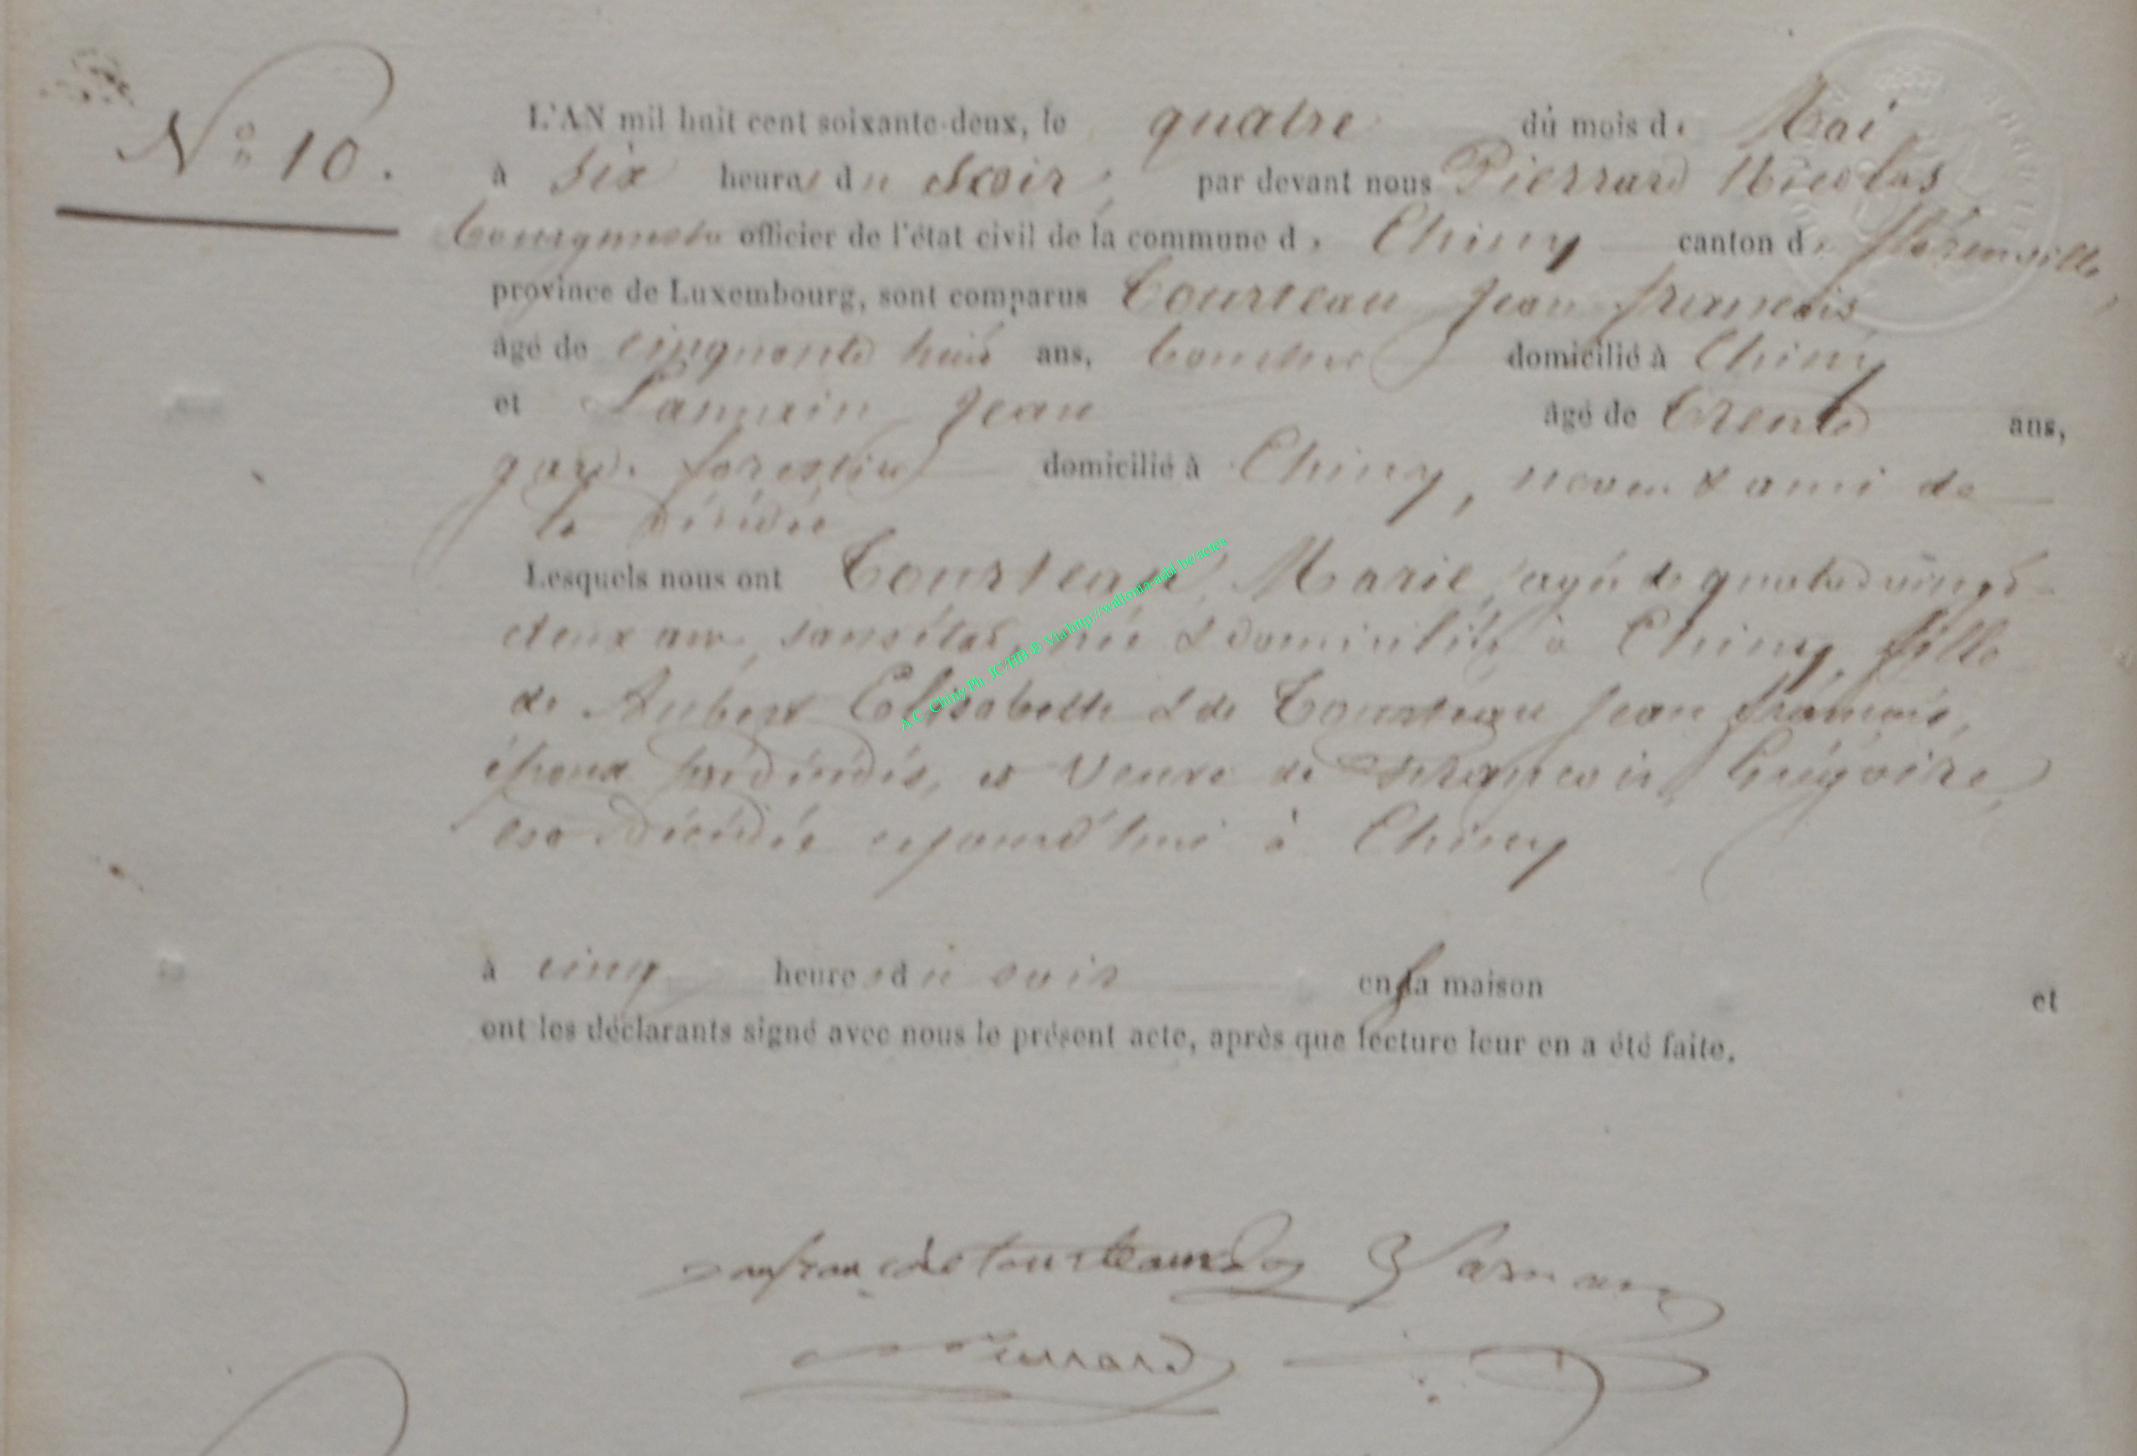 N° 10.
L'AN mil huit cent soixante-deux, le quatre du mois de Mai
à six heures du soir, par devant nous Pierrard Nicolas
bourgmestre officier de l'état civil de la commune de Chiny canton de florenville,
province de Luxembourg, sont comparus Tourteau Jean françois
âgé de cinquante huit ans, domicilié à Chiny
et Jean âgé de trente ans,
garde forestier domicilié à Chiny, neveu & ami de
la décédée
Lesquels nous ont Tourteau Marie, agée de quatre vingt-
deux ans, sans état, née & domiciliée à Chiny, fille
de Aubert Elisabeth & de Tourteau Jean françois,
époux prédécédés, et veuve de François Grégoire,
est décédée aujourd'hui à Chiny
à cinq heures du soir en sa maison et
ont les déclarants signé avec nous le présent acte, après que lecture leur en a été faite.
Jean françois tourteau
Pierrard
A.C. Chiny Ph. JC/HB © Via http://wallonia-asbl.be/actes